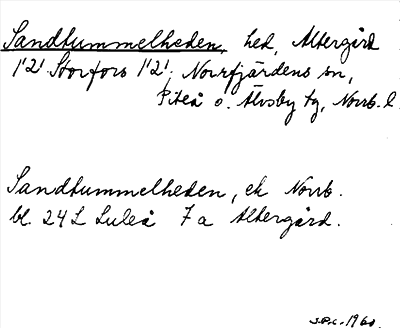 Sandtummelheden, hed, Altergård
1'2! Storfors 1'2!, Norrfjärdens sn,
Piteå o. Älvsby tg, Norrb. l
Sandtummelheden, ek Norrb.
bl. 24 L Luleå 7a Altergård.
1960.